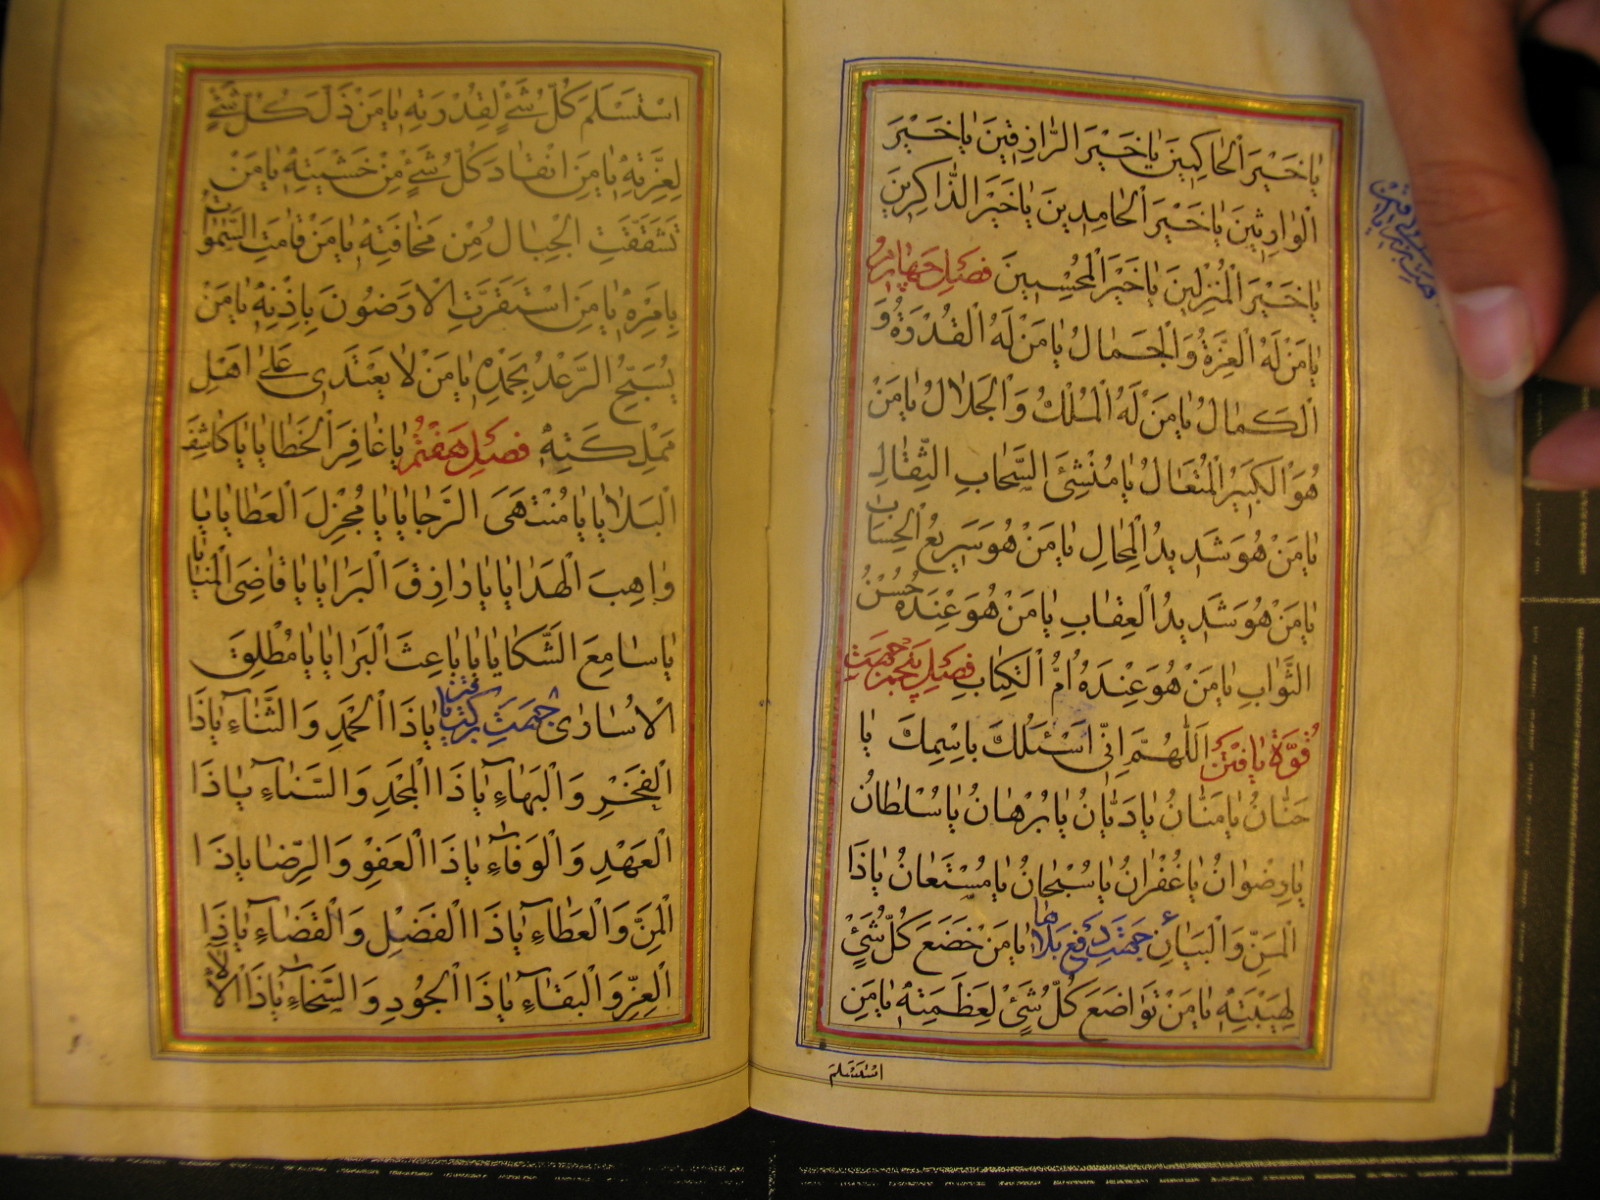 يَا خَيْرَ الْحَاكِمِينَ يَا خَيْرَ الرَّازِقِينَ يَا خَيْرَ
الْوَارِثِينَ يَا خَيْرَ الْحَامِدِينَ يَا خَيْرَ الذَّاكِرِينَ
يَا خَيْرَ الْمُنْزِلِينَ يَا خَيْرَ الْمُحْسِنِينَ فصل چهارم
يَا مَنْ لَهُ الْعِزَّةُ وَالْجَمَالُ يَا مَنْ لَهُ الْقُدْرَةُ وَ
الْكَمَالُ يَا مَنْ لَهُ الْمُلْكُ وَالْجَلَالُ يَا مَنْ
هُوَ الْكَبِيرُ الْمُتَعَالُ يَا مُنْشِئَ السَّحَابِ الثِّقَالِ
يَا مَنْ هُوَ شَدِيدُ الْمِحَالِ يَا مَنْ هُوَ سَرِيعُ الْحِسَابِ
يَا مَنْ هُوَ شَدِيدُ الْعِقَابِ يَا مَنْ هُوَ عِنْدَهُ حُسْنُ
الثَّوَابِ يَا مَنْ هُوَ عِنْدَهُ اُمُّ الْكِتَابِ فصل پنجم جهت
قوّة يافتن اَللّٰهُمَّ اِنِّى اَسْئَلُكَ بِاسْمِكَ يَا
حَنَّانُ يَا مَنَّانُ يَا دَيَّانُ يَا بُرْهَانُ يَا سُلْطَانُ
يَا رِضْوَانُ يَا غُفْرَانُ يَا سُبْحَانُ يَا مُسْتَعَانُ يَا ذَا
الْمَنِّ وَالْبَيَانِ جهت دفع بلاها يَا مَنْ خَضَعَ كُلُّ شَىْءٍ
لِهَيْبَتِهِ يَا مَنْ تَوَاضَعَ كُلُّ شَىْءٍ لِعَظَمَتِهِ يَا مَنِ
استسلم
اسْتَسْلَمَ كُلُّ شَىْءٍ لِقُدْرَتِهِ يَا مَنْ ذَلَّ كُلُّ شَىْءٍ
لِعِزَّتِهِ يَا مَنِ انْقَادَ كُلُّ شَىْءٍ مِنْ خَشْيَتِهِ يَا مَنْ
تَشَقَّقَتِ الْجِبَالُ مِنْ مَخَافَتِهِ يَا مَنْ قَامَتِ السَّمٰوَاتُ
بِاَمْرِهِ يَا مَنِ اسْتَقَرَّتِ الْاَرَضُونَ بِاِذْنِهِ يَا مَنْ
يُسَبِّحُ الرَّعْدُ بِحَمْدِهِ يَا مَنْ لَا يَعْتَدِى عَلٰى اَهْلِ
مَمْلِكَتِهِ فصل هفتم يَا غَافِرَ الْخَطَايَا يَا كَاشِفَ
الْبَلَايَا يَا مُنْتَهَى الرَّجَايَا يَا مُجْزِلَ الْعَطَايَا يَا
وَاهِبَ الْهَدَايَا يَا رَازِقَ الْبَرَايَا يَا قَاضِىَ الْمَنَايَا
يَا سَامِعَ الشَّكَايَا يَا بَاعِثَ الْبَرَايَا يَا مُطْلِقَ
الْاُسَارٰى جهت بركت يافتن يَا ذَا الْحَمْدِ وَالثَّنَاءِ يَا ذَا
الْفَخْرِ وَالْبَهَاءِ يَا ذَا الْمَجْدِ وَالسَّنَاءِ يَا ذَا
الْعَهْدِ وَالْوَفَاءِ يَا ذَا الْعَفْوِ وَالرِّضَا يَا ذَا
الْمَنِّ وَالْعَطَاءِ يَا ذَا الْفَضْلِ وَالْقَضَاءِ يَا ذَا
الْعِزِّ وَالْبَقَاءِ يَا ذَا الْجُودِ وَالسَّخَاءِ يَا ذَا الْاٰلَاءِ